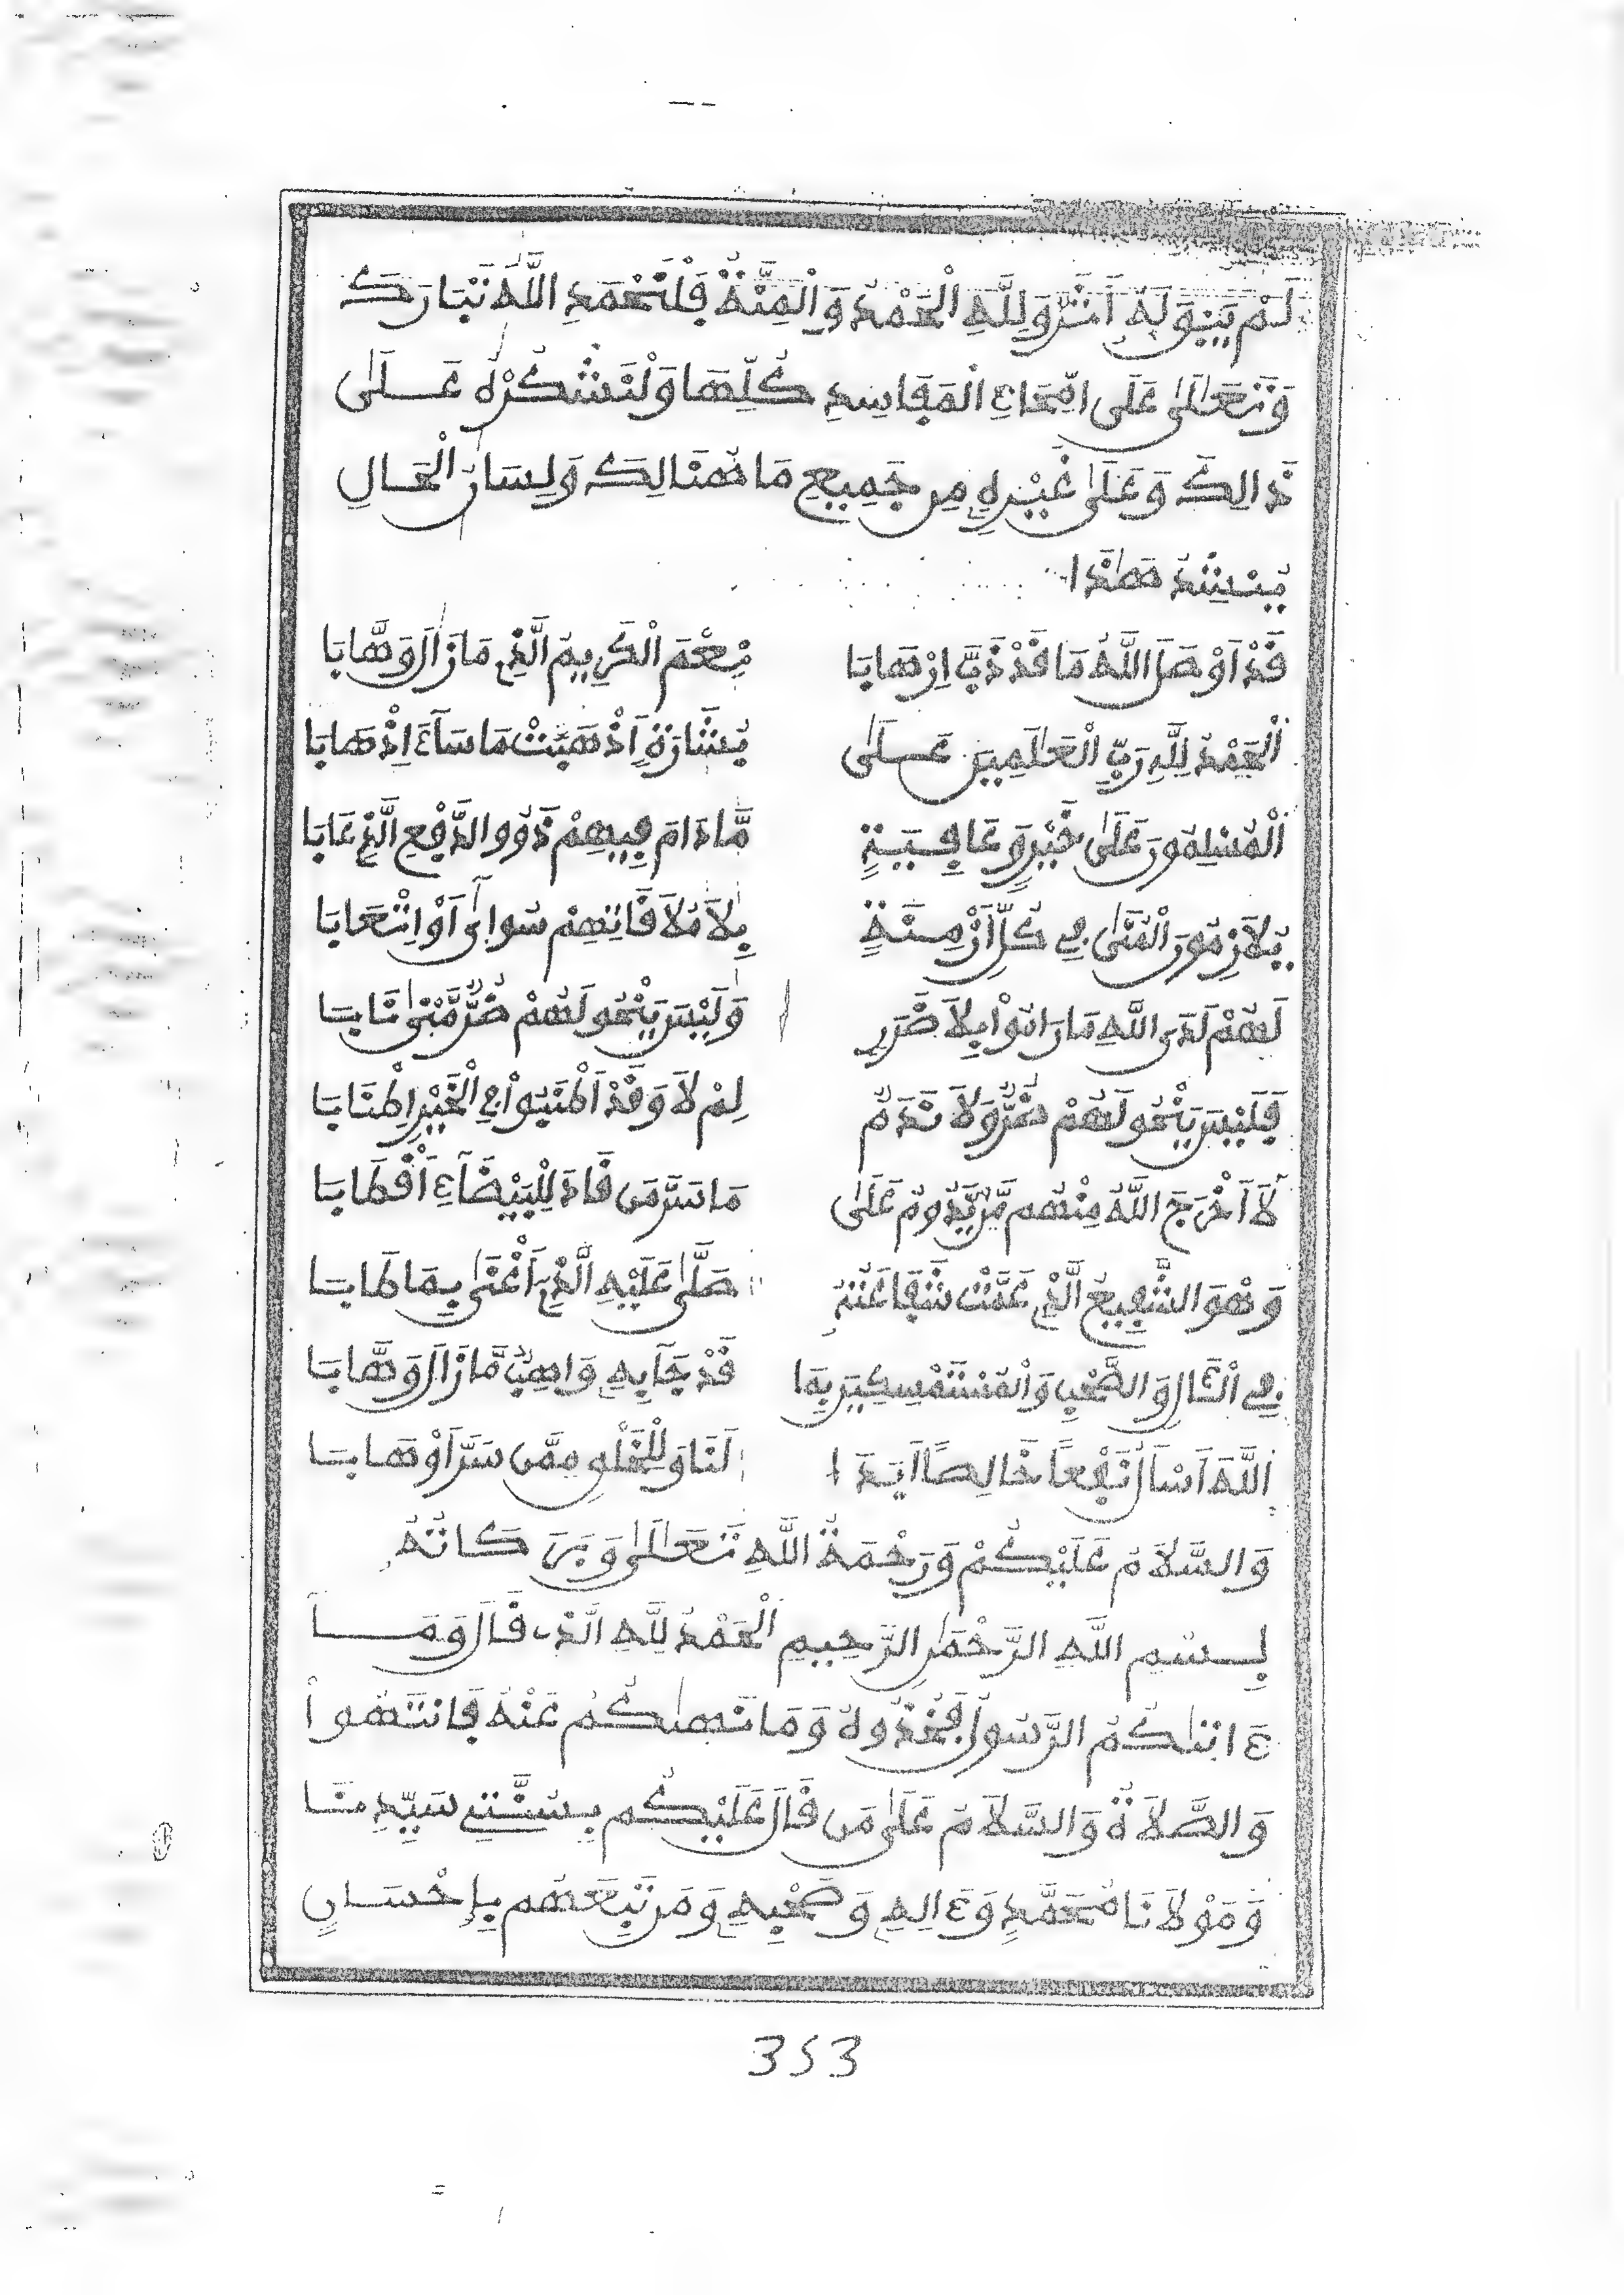 لَمْ يَبْقَ لَهُ أَثَرٌ وَلِلَّهِ الْحَمْدُ وَالْمِنَّةُ فَلْنَحْمَدِ اللَّهَ تَبَارَكَ
وَتَعَالَىٰ عَلَى امِّحَاءِ الْمَفَاسِدِ كُلِّهَا وَلْنَشْكُرْهُ عَلَىٰ
ذَالِكَ وَعَلَىٰ غَيْرِهِ مِن جَمِيعِ مَا هُنَالِكَ وَلِسَانُ الْحَالِ
يُنْشِدُ هَٰذَا
قَدْ أَوْصَلَ اللَّهُ مَا قَدْ ذَبَّ إِرْهَابَا نِعْمَ الْكَرِيمُ الَّذِي مَا زَالَ وَهَّابَا
الْحَمْدُ لِلَّهِ رَبِّ الْعَالَمِينَ عَلَىٰ بِشَارَةٍ أَذْهَبَتْ مَا سَآءَ إِذْهَابَا
الْمُسْلِمُونَ عَلَىٰ خَيْرٍ وَعَافِيَةٍ مَّا دَامَ فِيهِمْ ذَوُو الدَّفْعِ الَّذِي عَابَا
يُلَازِمُونَ الْمُنَىٰ فِي كُلِّ أَزْمِنَةٍ بِلَا مُلَاقَاتِهِمْ سُوٓأَىٰ أَوْ اِتْعَابَا
لَهُمْ لَدَى اللَّهِ مَا رَامُوا بِلَا ضَرَرٍ وَلَيْسَ يَنْحُو لَهُمْ ضُرٌّ مَّتَىٰ نَابَا
فَلَيْسَ يَنْحُو لَهُمْ شَرٌّ وَلَا نَدَمٌ لِمْ لَا وَقَدْ أَطْنَبُوا فِي الْخَيْرِ إِطْنَابَا
لَا أَخْرَجَ اللَّهُ مِنْهُم مَّن يَّدُومُ عَلَىٰ مَا سَرَّ مَن قَادَ لِلْبَيْضَآءِ أَقْطَابَا
وَهْوَ الشَّفِيعُ الَّذِي عَمَّتْ شَفَاعَتُهُ صَلَّىٰ عَلَيْهِ الَّذِي أَغْنَىٰ بِمَا طَابَا
فِي الْآلِ وَالصَّحْبِ وَالْمُسْتَمْسِكِينَ بِمَا قَدْ جَا بِهِ وَاهِبٌ مَّا زَالَ وَهَّابَا
اللَّهَ أَسْأَلُ نَفْعاً خَالِصاً أَبَدَا لَنَا وَلِلْخَلْقِ مِمَّن سَرَّ أَوْ هَابَا
وَالسَّلَامُ عَلَيْكُمْ وَرَحْمَةُ اللَّهِ تَعَالَىٰ وَبَرَكَاتُهُ
بِسْمِ اللَّهِ الرَّحْمَٰنِ الرَّحِيمِ الْحَمْدُ لِلَّهِ الَّذِي قَالَ وَمَآ
ءَاتَىٰكُمُ الرَّسُولُ فَخُذُوهُ وَمَا نَهَىٰكُمْ عَنْهُ فَانتَهُوا
وَالصَّلَاةُ وَالسَّلَامُ عَلَىٰ مَن قَالَ عَلَيْكُم بِسُنَّتِي سَيِّدِنَا
وَمَوْلَانَا مُحَمَّدٍ وَءَالِهِ وَصَحْبِهِ وَمَن تَبِعَهُم بِإِحْسَانٍ
353